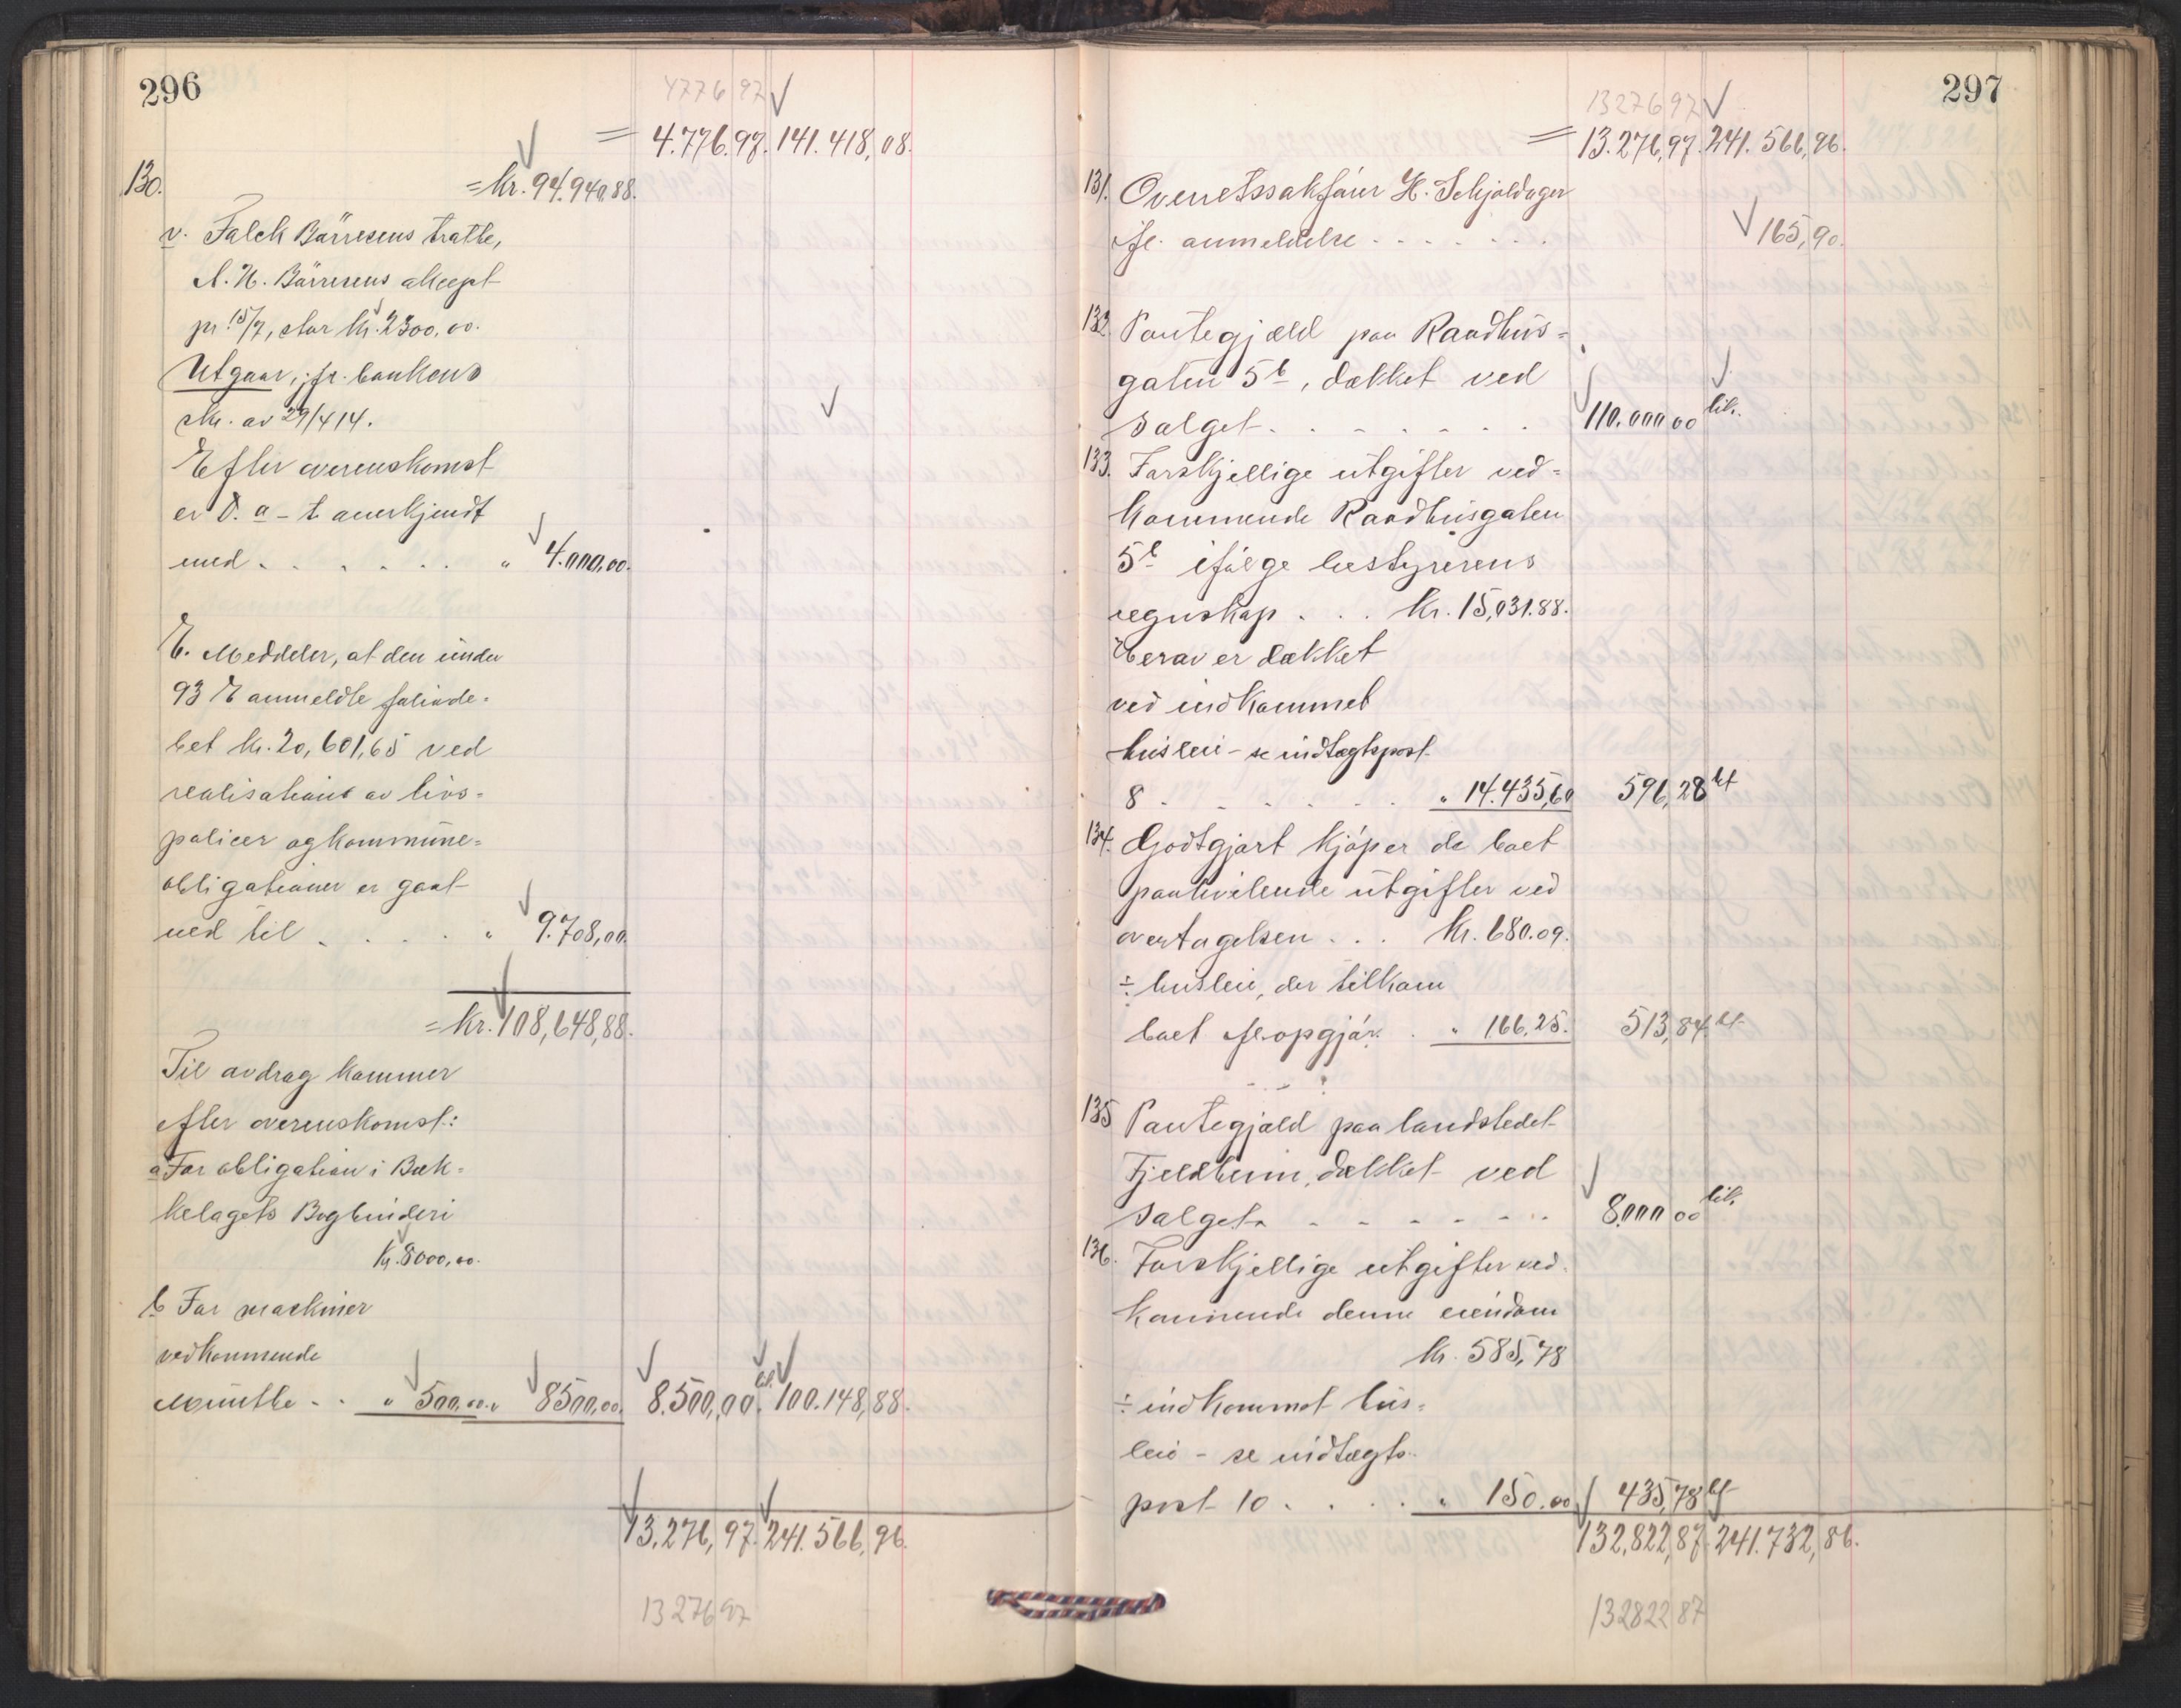 296
4776 97
= 4.776.97. 141.418,08.
130. = kr. 94.940,88.
v. Falck Börresens tratte,
A. N. Börresens accept
pr. 15/7, stor kr. 2300,00.
Utgaar, jfr. bankens
skr. av 29/4 14.
Efter overenskomst
er d. a - t anerkjendt
med . . . . . . " 4.000,00.
E. Meddeler, at den under
93 E anmeldte
bet kr. 20,601,65 ved
realisation av livs-
policer og kommune-
obligationer er gaat
ned til . . . . " 9.708,00.
= kr. 108,648,88.
Til avdrag kommer
efter overenskomst:
a For obligation i Bæk-
kelagets Bogbinderi
kr. 8000,00.
b For maskiner
vedkommende
Münthe . . " 500,00. " 8500,00. 8.500,00. lik. 100.148,88.
13,276,97. 241.566,96.
13 276 97
297
13276 97
= 13.276,97. 241.566,96.
131. Overretssakfører H. Schjoldager
ifl. anmeldelse . . . . . . . 165,90.
132 Pantegjæld paa Raadhus-
gaten 5b, dækket ved
salget . . . . . . . 110.000 00 lik.
133. Forskjellige utgifter ved-
kommende Raadhusgaten
5b ifølge bestyrerens
regnskap . . . kr. 15,031.88.
Herav er dækket
ved indkommet
husleie - se indtægtspost
8 . . . . . . " 14.435,60 596,28 bt
134. Godtgjort kjøper de boet
paahvilende utgifter ved
overtagelsen . . . kr. 680.09.
÷ husleie, der tilkom
boet ifl. opgjør. . " 166.25. 513,84. bt
135 Pantegjæld paa landstedet
Fjeldheim, dækket ved
salget . . . . . . . 8.000 00 lik.
136. Forskjellige utgifter ved-
kommende denne eiendom
kr. 585,78
÷ indkommet hus-
leie - se indtægts-
post 10 . . . . . " 150.00 435,78 bt
132,822,87. 241.732,86.
132822 87